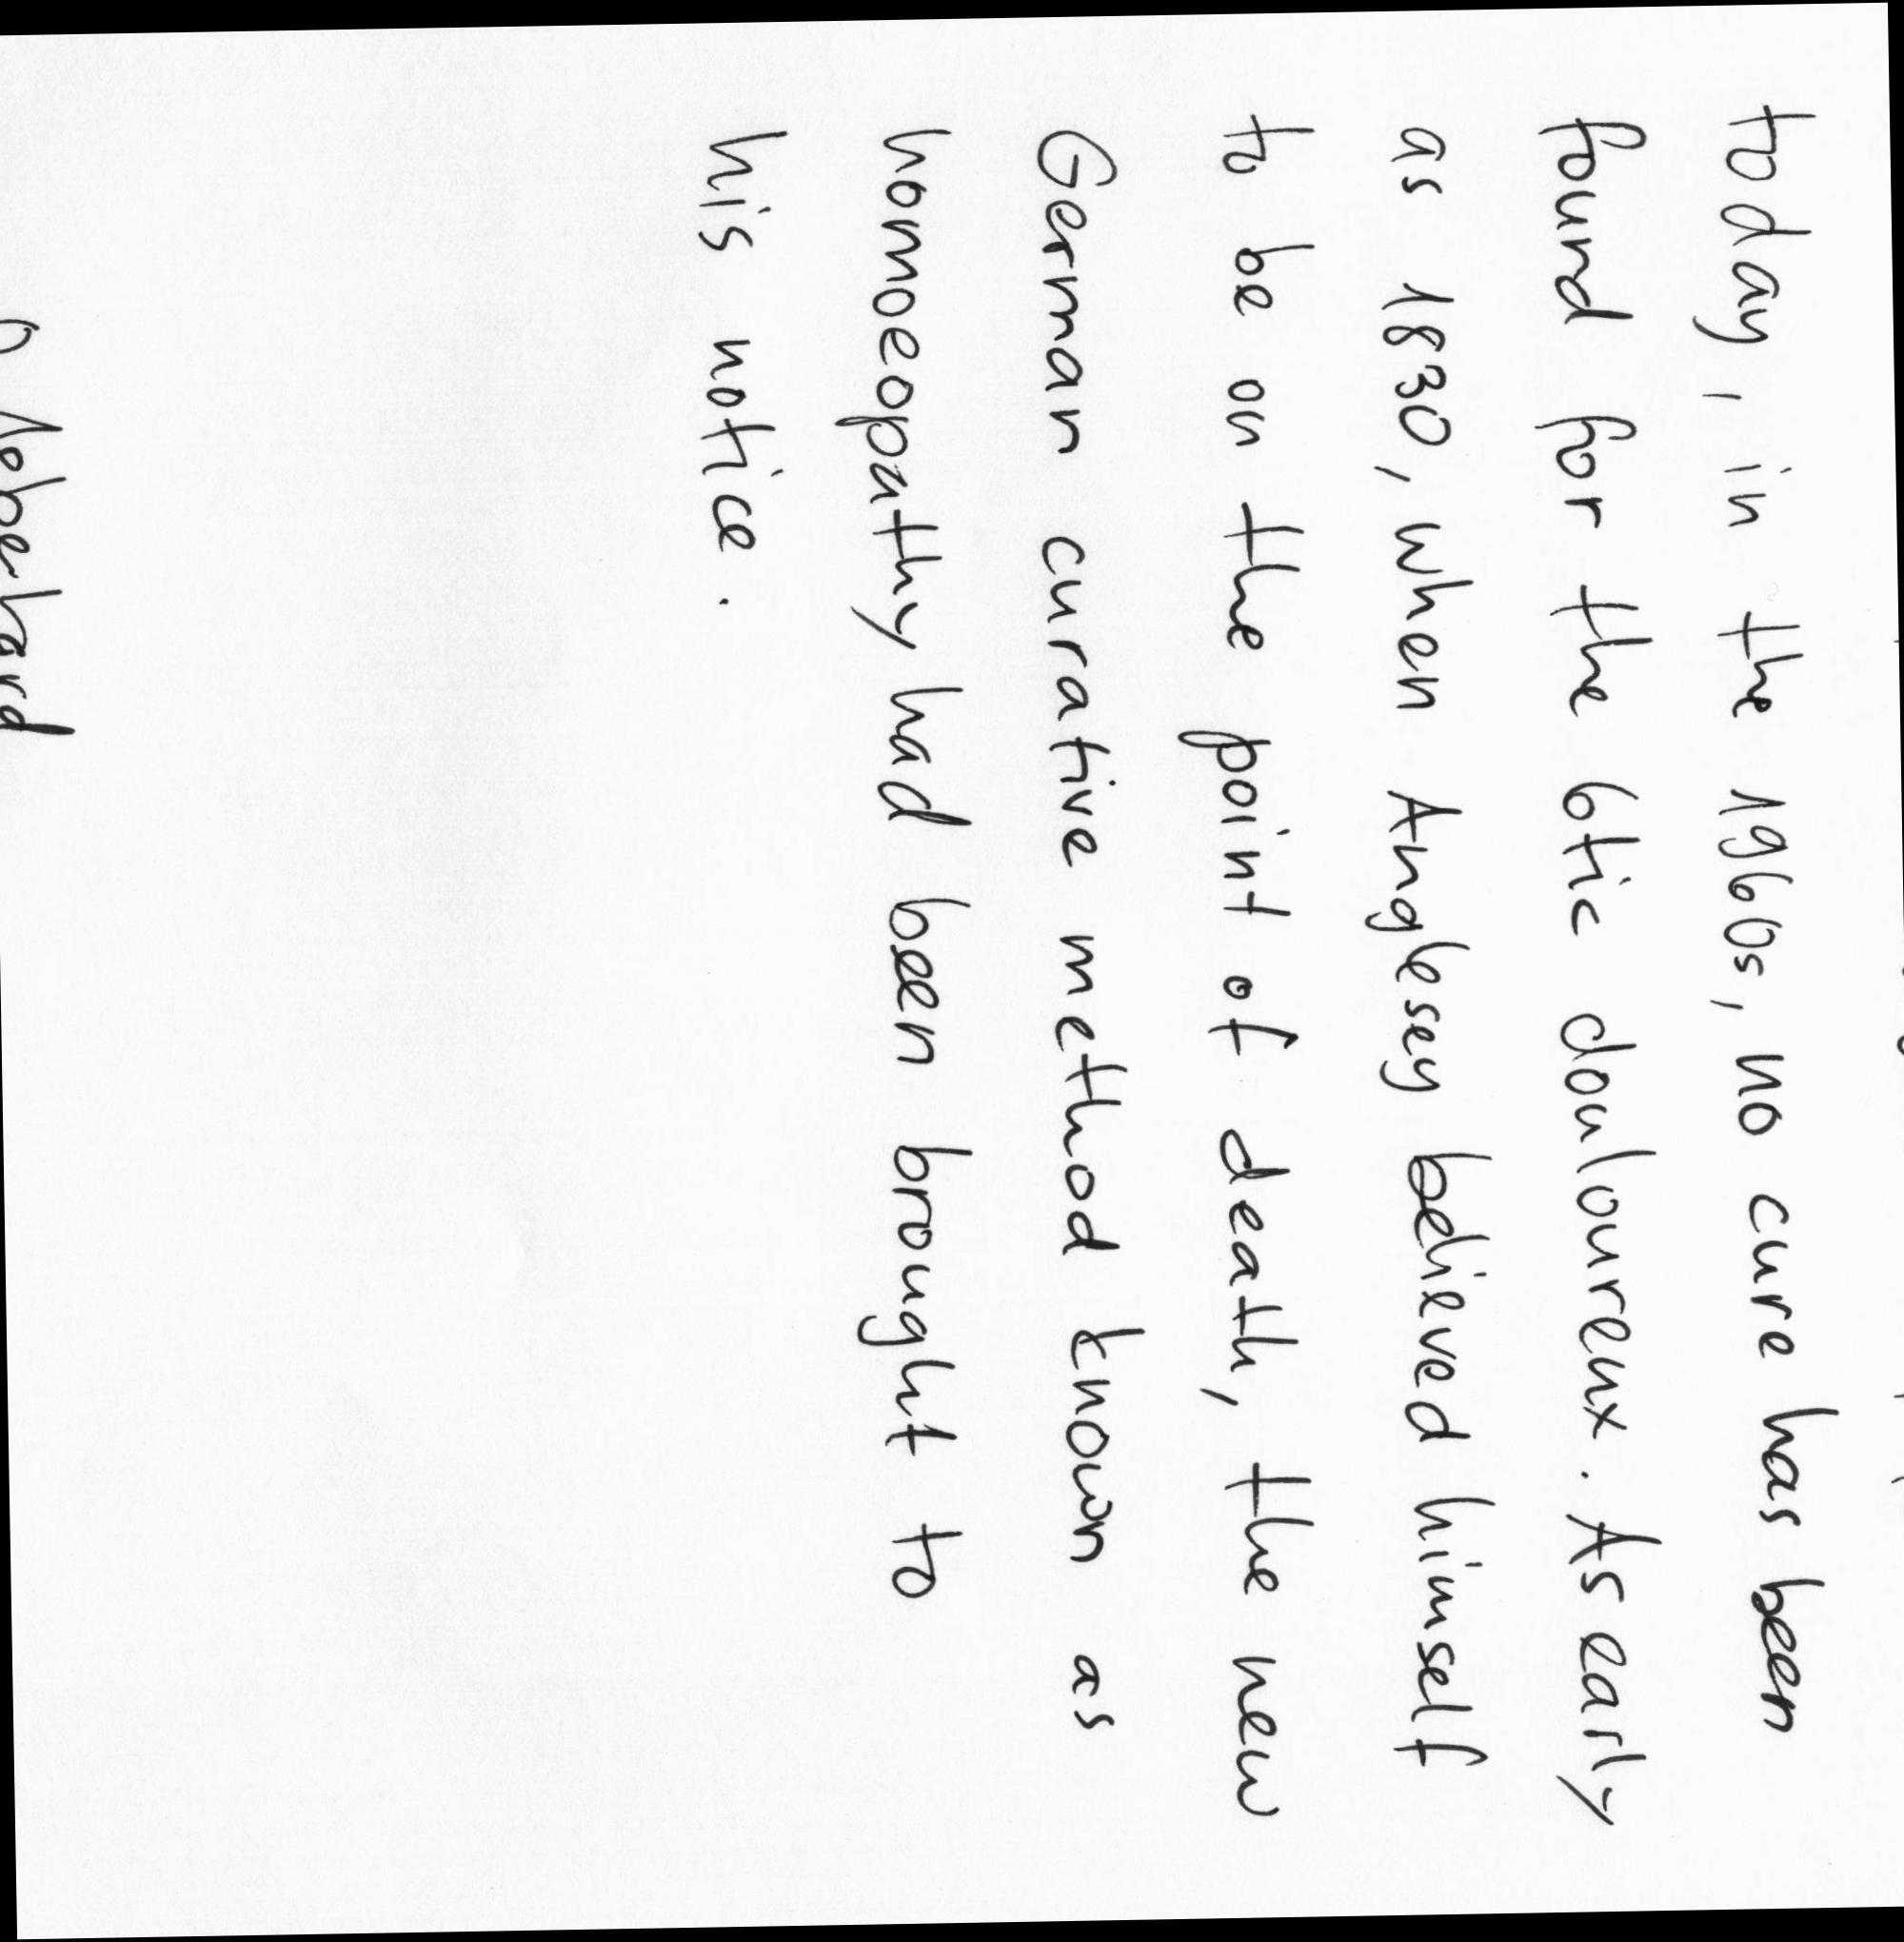 today, in the 1960s, no cure has been
found for the 6tic douloureux. As early
as 1830, when Anglesey believed himself
to be on the point of death, the new
German curative method known as
homoeopathy had been brought to
his notice.